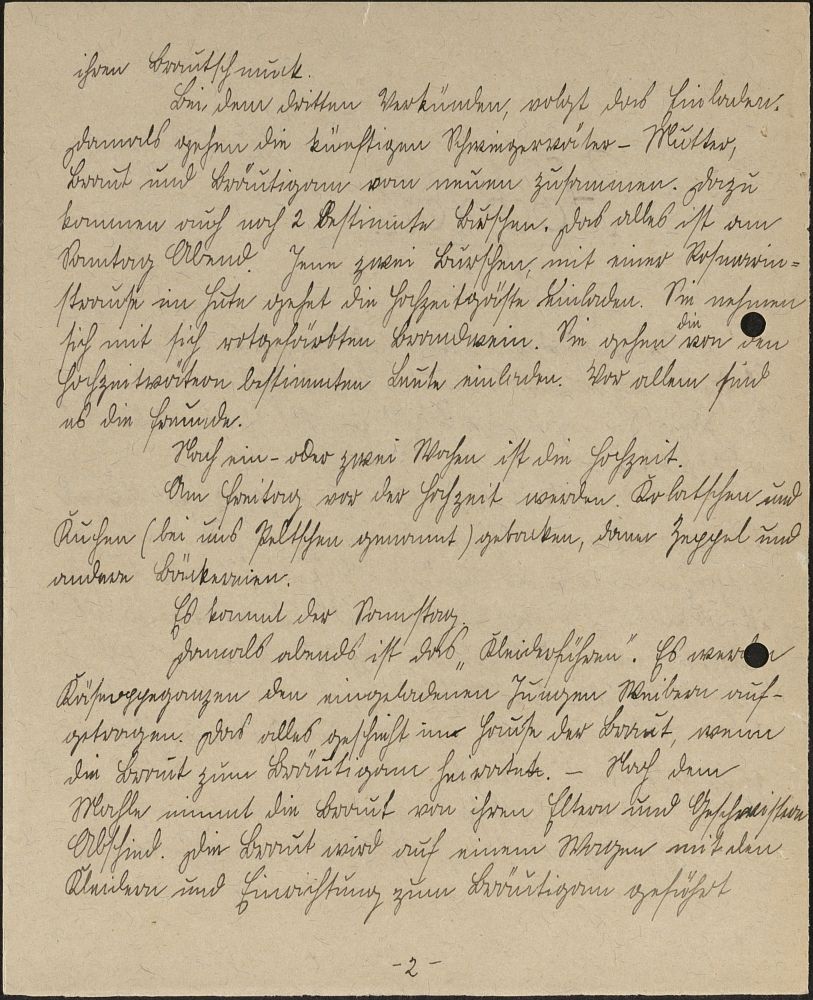 ihren Brautschmuck.
Bei dem dritten Verkünden, volgt das Einladen.
Damals gehen die künftigen Schwiegerväter - Mutter,
Braut und Bräutigam vom neuen zusammen. Dazu
kommen auch noch 2 Bestimmte Burschen. Das alles ist am
Sonntag Abend. Jene zwei Burschen, mit einer Rosmarin=
strause im Hute gehet die Hochzeitgäste Einladen. Sie nehmen
sich mit sich rotgefärbten Brandwein. Sie gehen die von den
Hochzeitvätern bestimmten Leute einladen. Vor allem sind
es die Freunde.
Nach ein - oder zwei Wochen ist die Hochzeit.
Am Freitag vor der Hochzeit werden Kolatschen und
Kuchen (bei uns Peltschen genannt) gebacken, dann Zeppel und
andere Bäckereien.
Es kommt der Samstag.
Damals abends ist das „Kleiderführen". Es werden
den eingeladenen Jungen Weibern auf-
getragen. Das alles geschieht im Hause der Braut, wenn
die Braut zum Bräutigam heiratet. - Nach dem
Mahle nimmt die Braut von ihren Eltern und Geschwistern
Abschied. Die Braut wird auf einem Wagen mit den
Kleidern und Einrichtung zum Bräutigam geführt
- 2 -